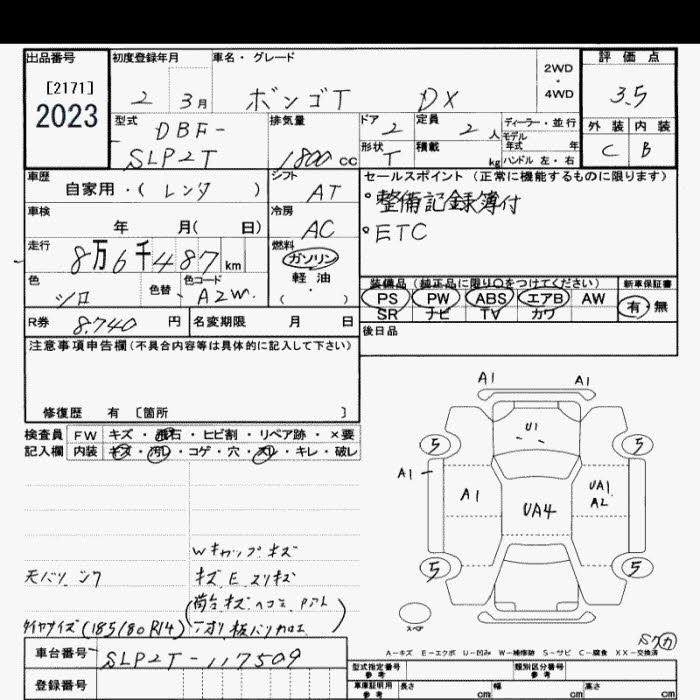 出品番号 初度登録年月 車名・グレード 評価点
[2171] 2WD・4WD
2023 2 3月 ボンゴT DX 3.5
型式 DBF- 排気量 ドア 2 定員 2人 ディーラー・並行 外装 内装
モデル年式 年
SLP2T 1800cc 形状 T 積載 kg ハンドル 左・右 C B
車歴 シフト セールスポイント (正常に機能するものに限ります)
自家用・( レンタ ) AT °整備記録簿付
車検 冷房 °ETC
年 月( 日) AC
走行 8万6千487km 燃料 ガソリン
軽油
・( )
色 色替 色コード 装備品 (純正品に限り○をつけてください) 新車保証書
シロ ・ A2W. PS PW ABS エアB AW 有・無
SR ナビ TV カワ
R券 8.740円 名変期限 月 日 後日品
注意事項申告欄(不具合内容等は具体的に記入して下さい)
修復歴 有 [箇所 ]
検査員 FW キズ・飛石・ヒビ割・リペア跡・×要
記入欄 内装 キズ・汚レ・コゲ・穴・スレ・キレ・破レ
A1 A1
U1
5 5
A1 A1 UA4 UA1
A2
5 5
Wキャップキズ
キズ、E、スリキズ
荷台キズヘコミ
タイヤサイズ(185/80R14)
スペア
A-キズ E-エクボ U-凹み W-補修跡 S-サビ C-腐食 XX-交換済
車台番号 SLP2T-117509
登録番号
型式指定番号 参考 類別区分番号 参考
車庫証明用 参考 長さ cm 幅 cm 高さ cm